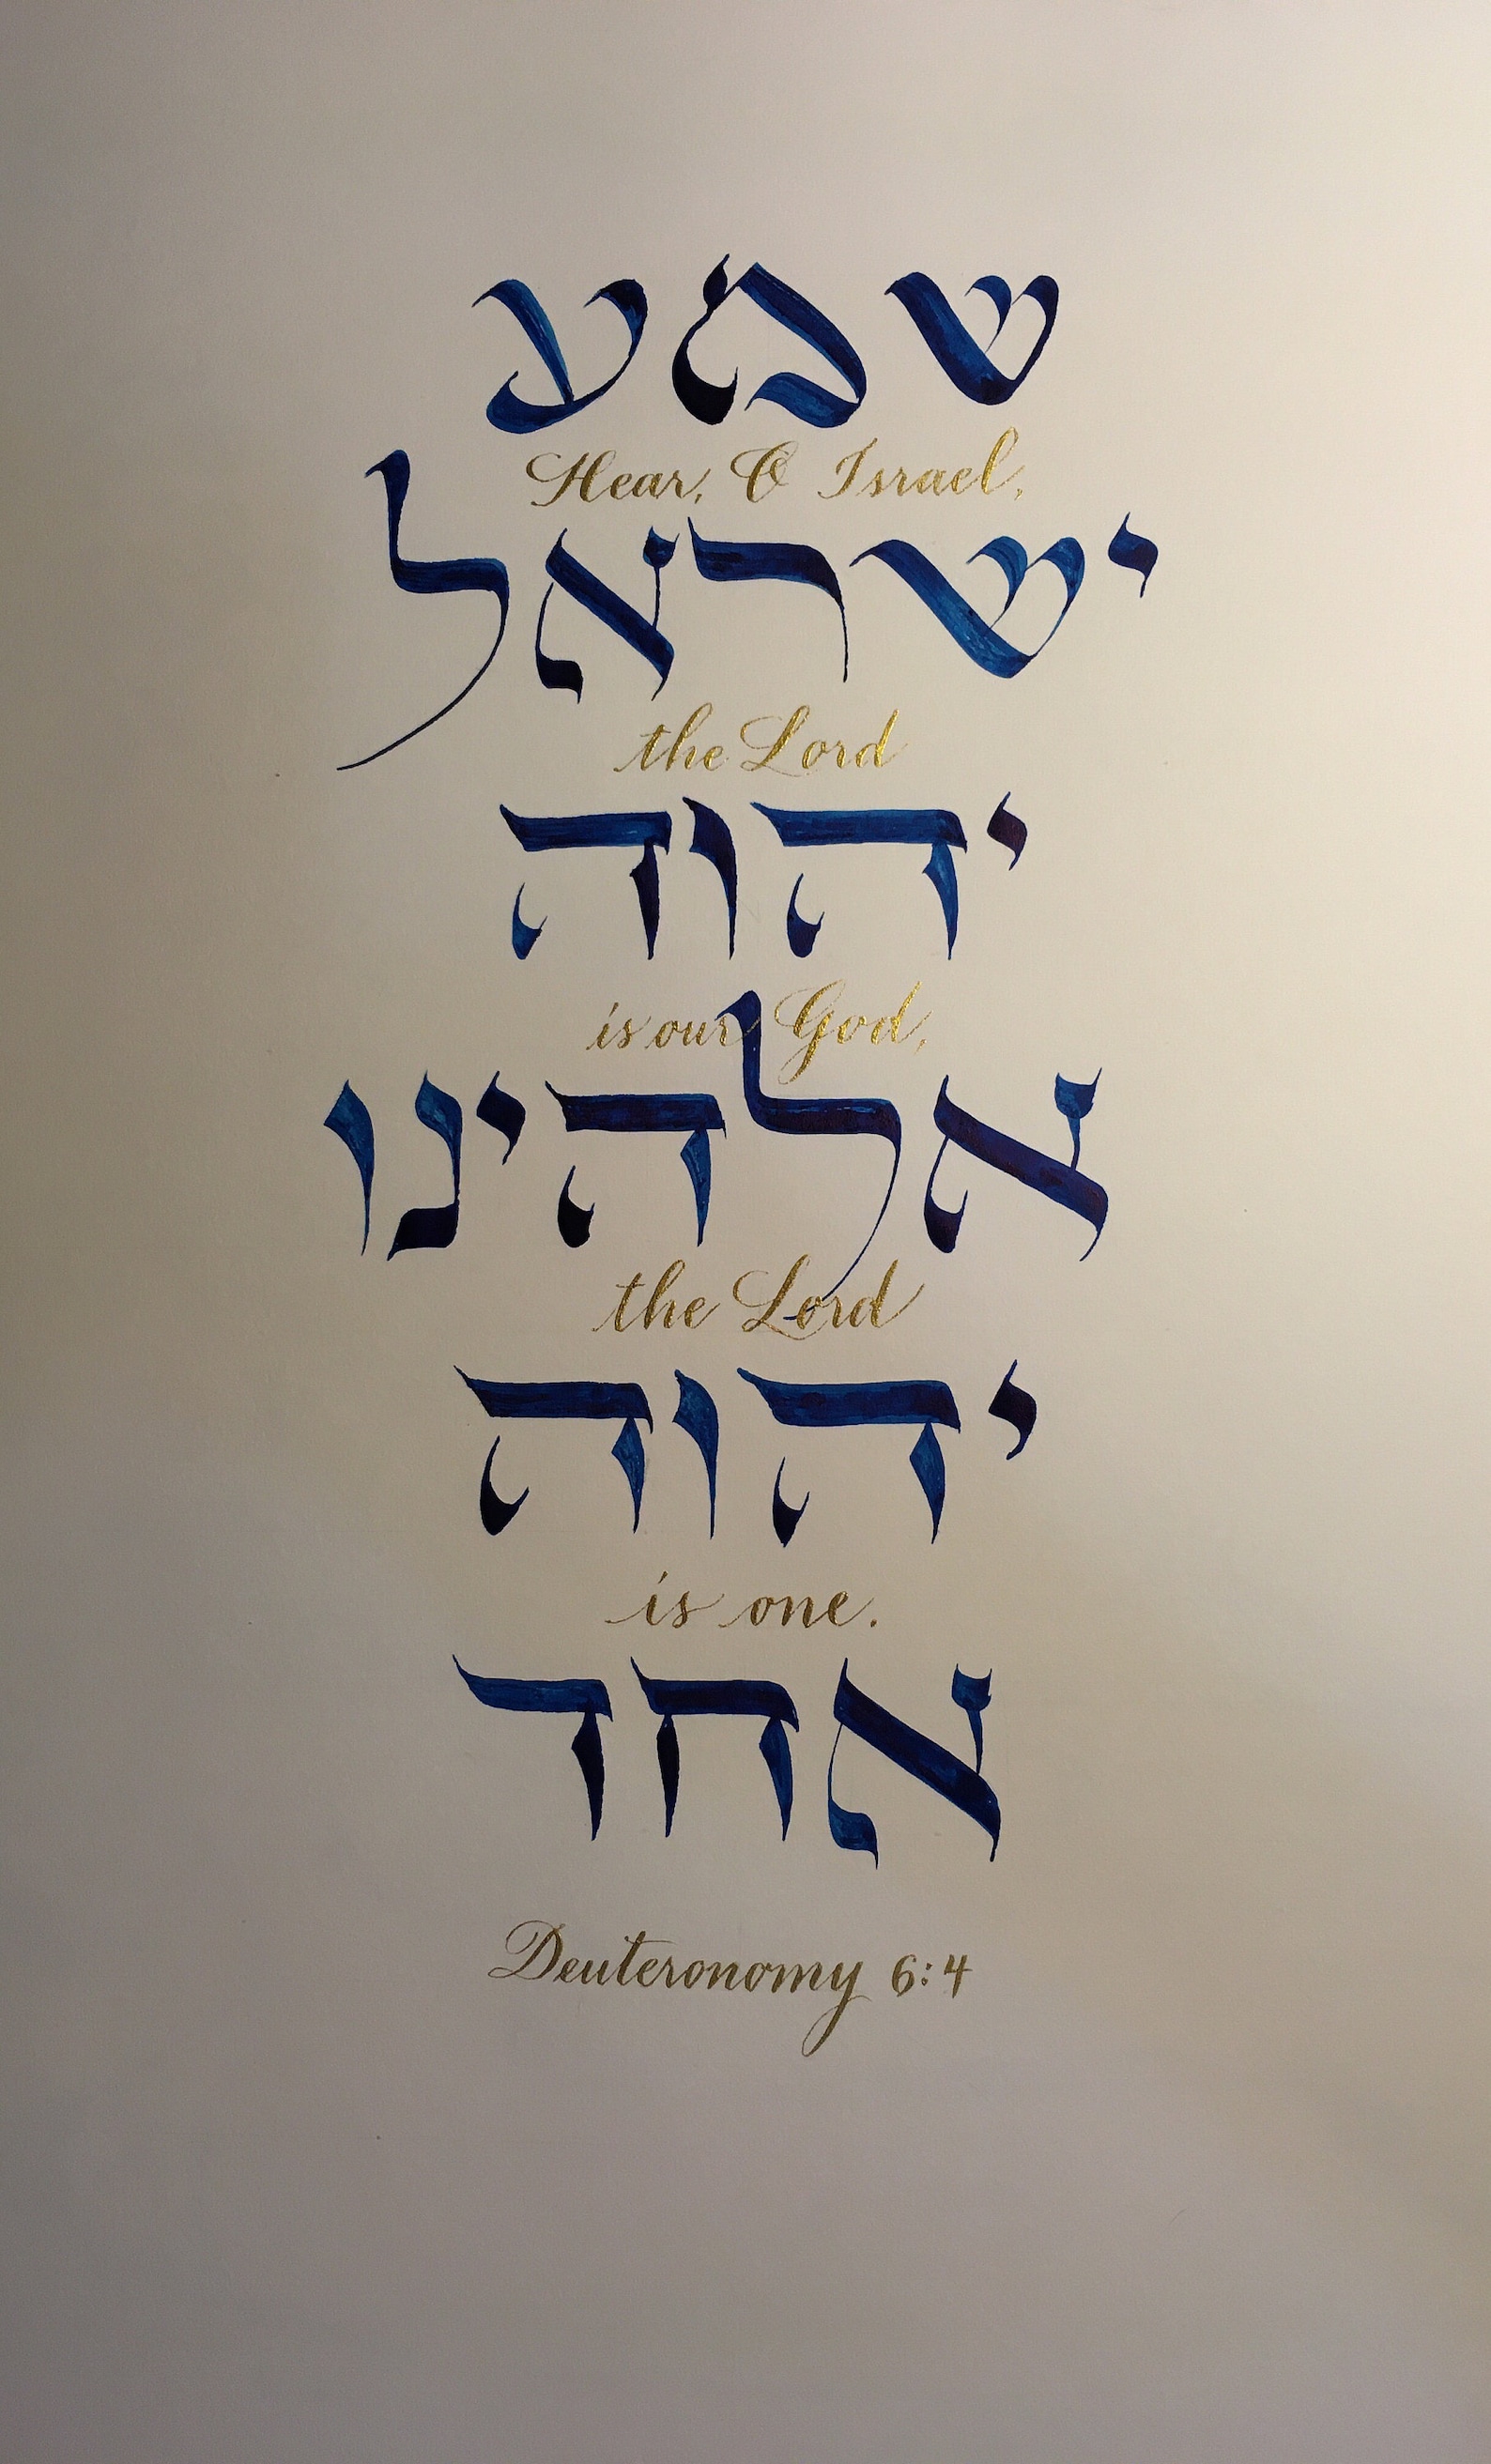 שמע
Hear, O Israel,
ישראל
the Lord
יהוה
is our God,
אלהינו
the Lord
יהוה
is one.
אחד
Deuteronomy 6:4